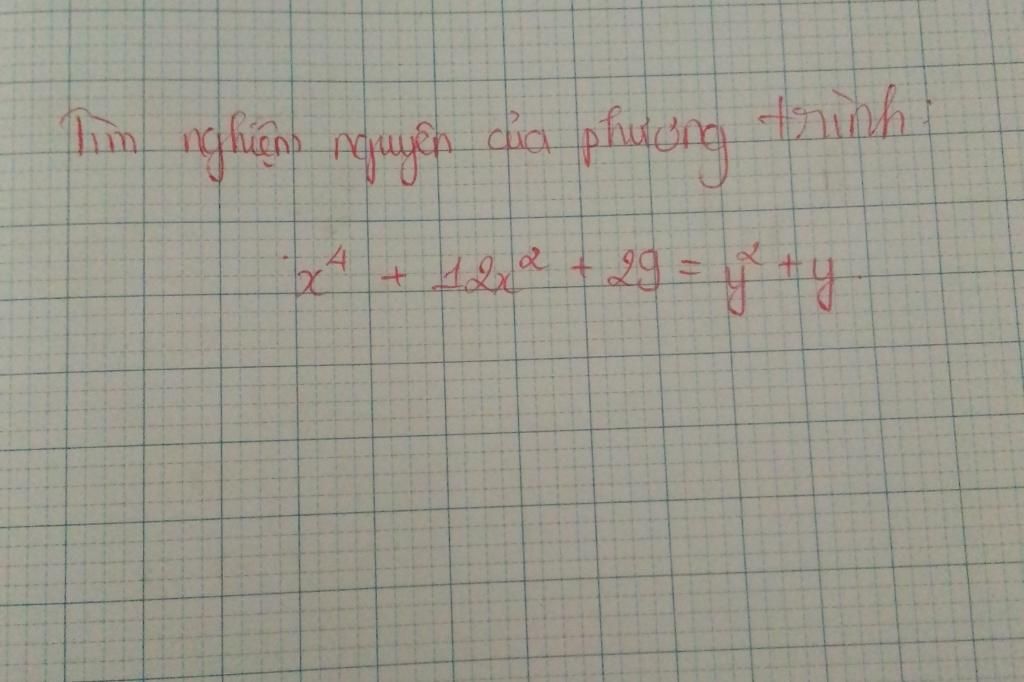 Tìm nghiệm nguyên của phương trình:
x⁴ + 12x² + 29 = y² + y.